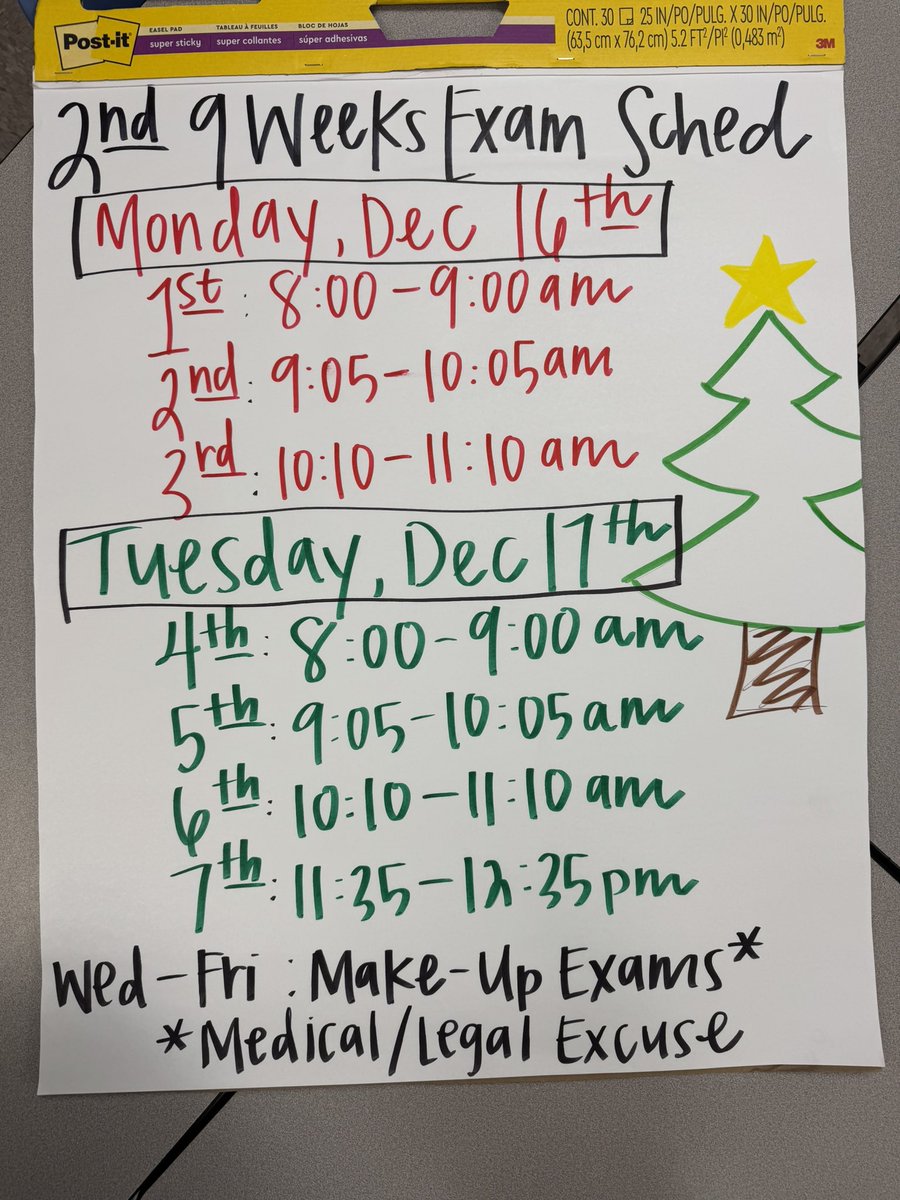 Post-it
EASEL PAD
super sticky
TABLEAU À FEUILLES
super collantes
BLOC DE HOJAS
súper adhesivas
CONT. 30 25 IN/PO/PULG. X 30 IN/PO/PULG.
(63,5 cm x 76,2 cm) 5.2 FT²/PI² (0,483 m²)
3M
2nd 9 Weeks Exam Sched
Monday, Dec 16th
1st: 8:00-9:00am
2nd: 9:05-10:05am
3rd: 10:10-11:10am
Tuesday, Dec 17th
4th: 8:00-9:00 am
5th: 9:05-10:05am
6th: 10:10-11:10 am
7th: 11:35-12:35pm
Wed-Fri: Make-Up Exams*
*Medical/Legal Excuse